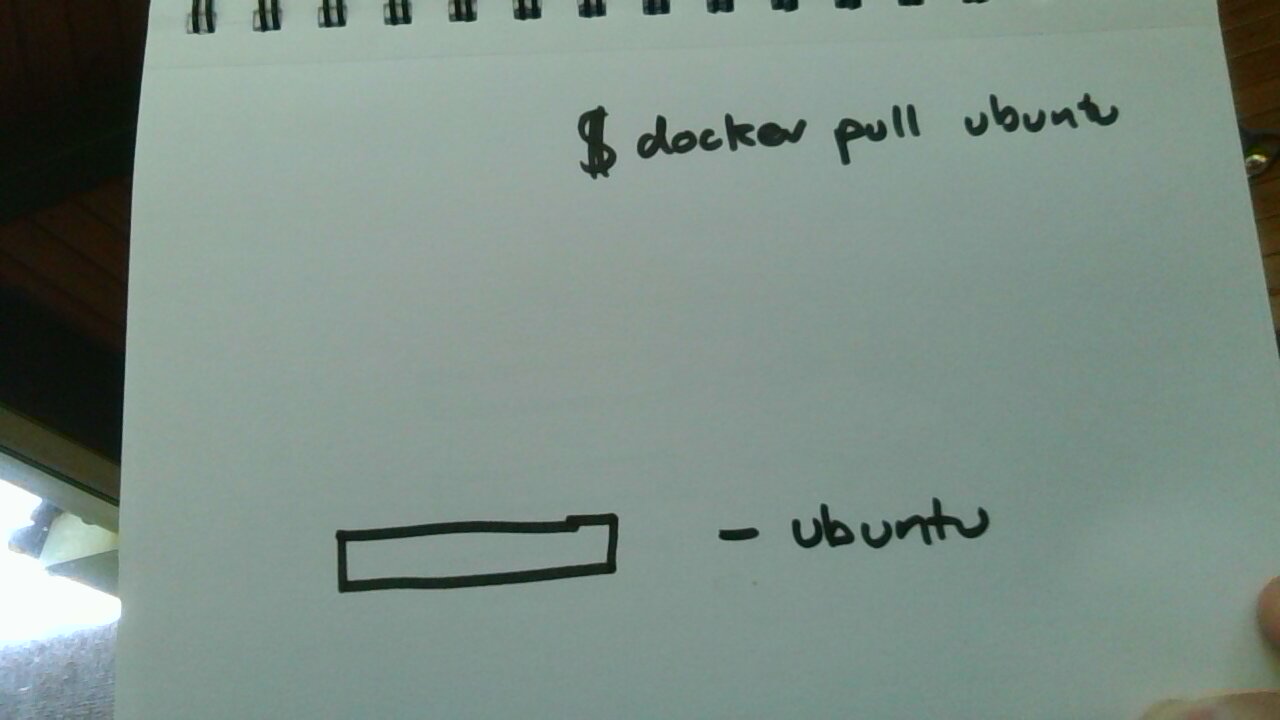 $ docker pull ubuntu
- ubuntu